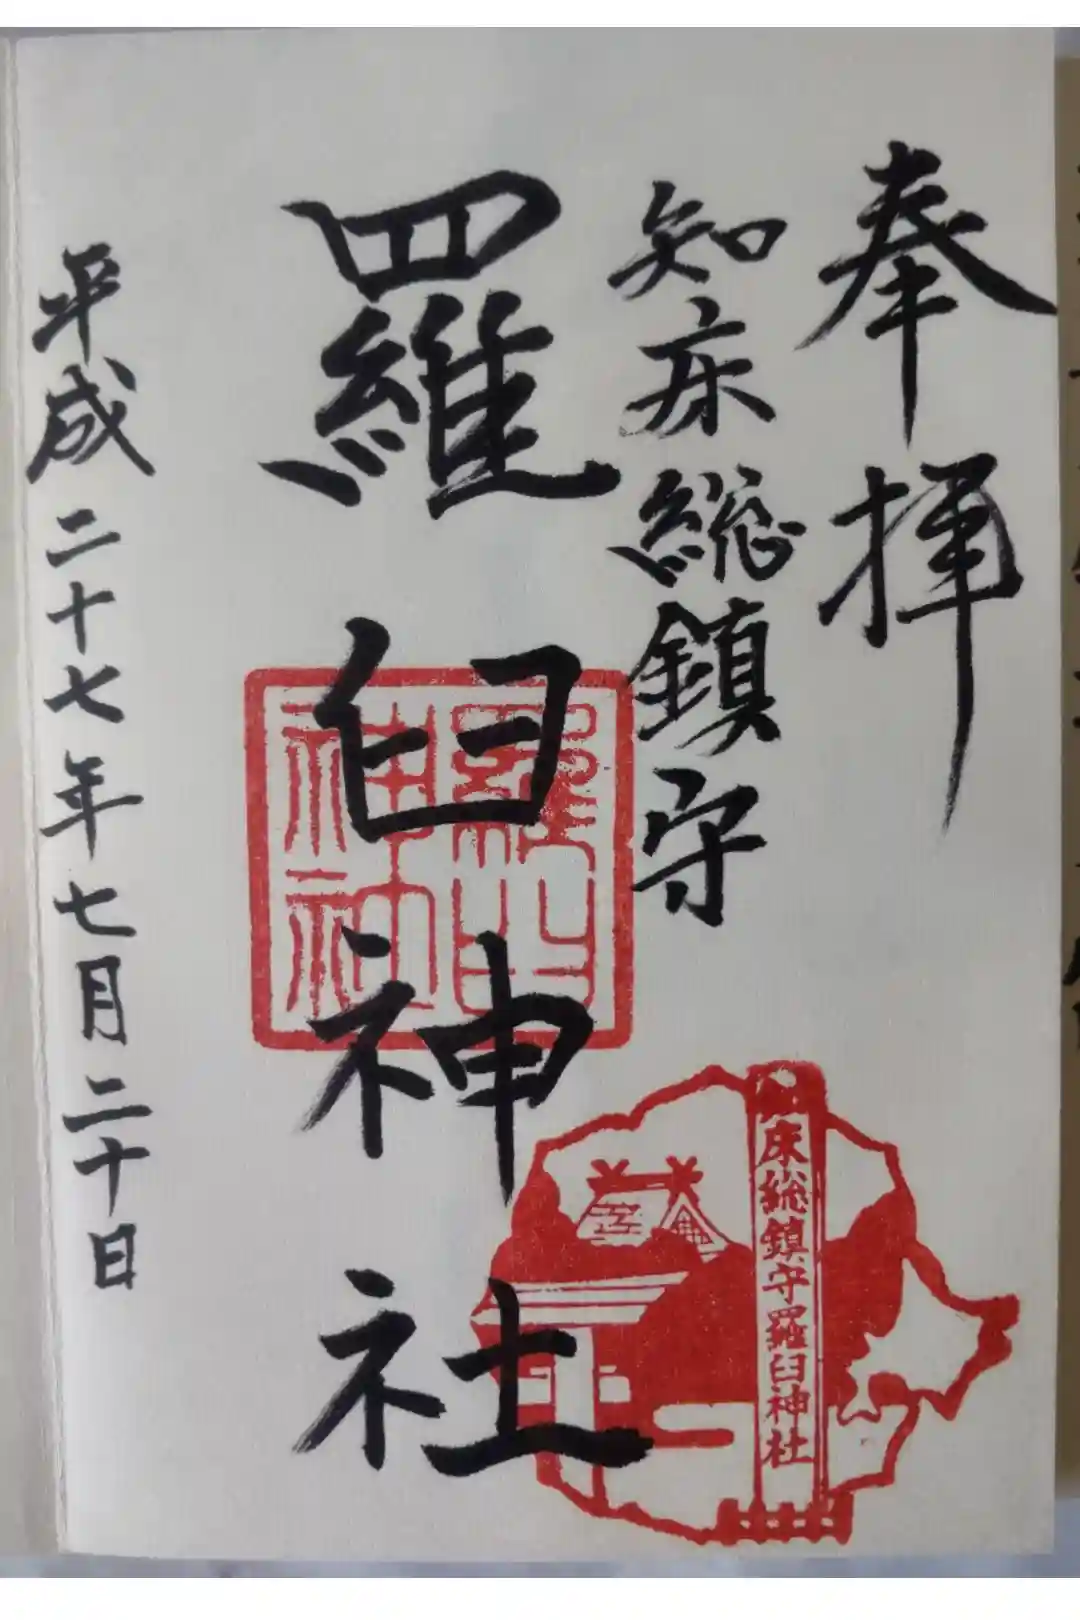 奉拝
知床総鎮守
羅臼神社
平成二十七年七月二十日
羅臼神社
床総鎮守羅臼神社